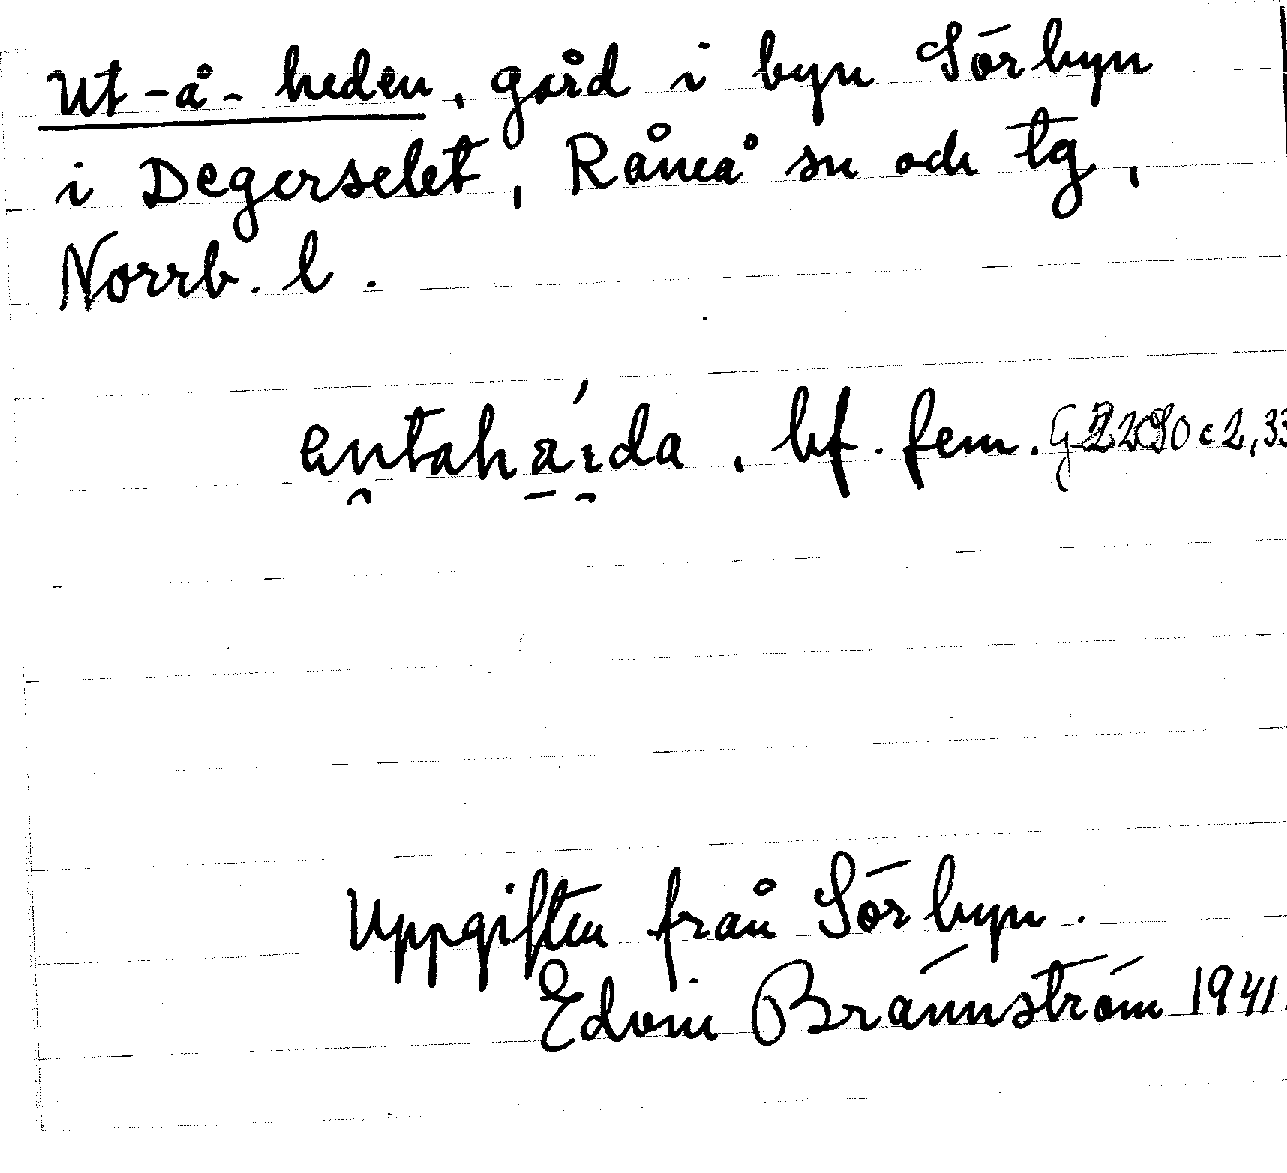 Ut-å-heden, gård i byn Sörbyn
i Degerselet, Råneå sn och tg,
Norrb. l.
bf. fem.
Uppgiften från Sörbyn.
Edvin Brännström 1941.